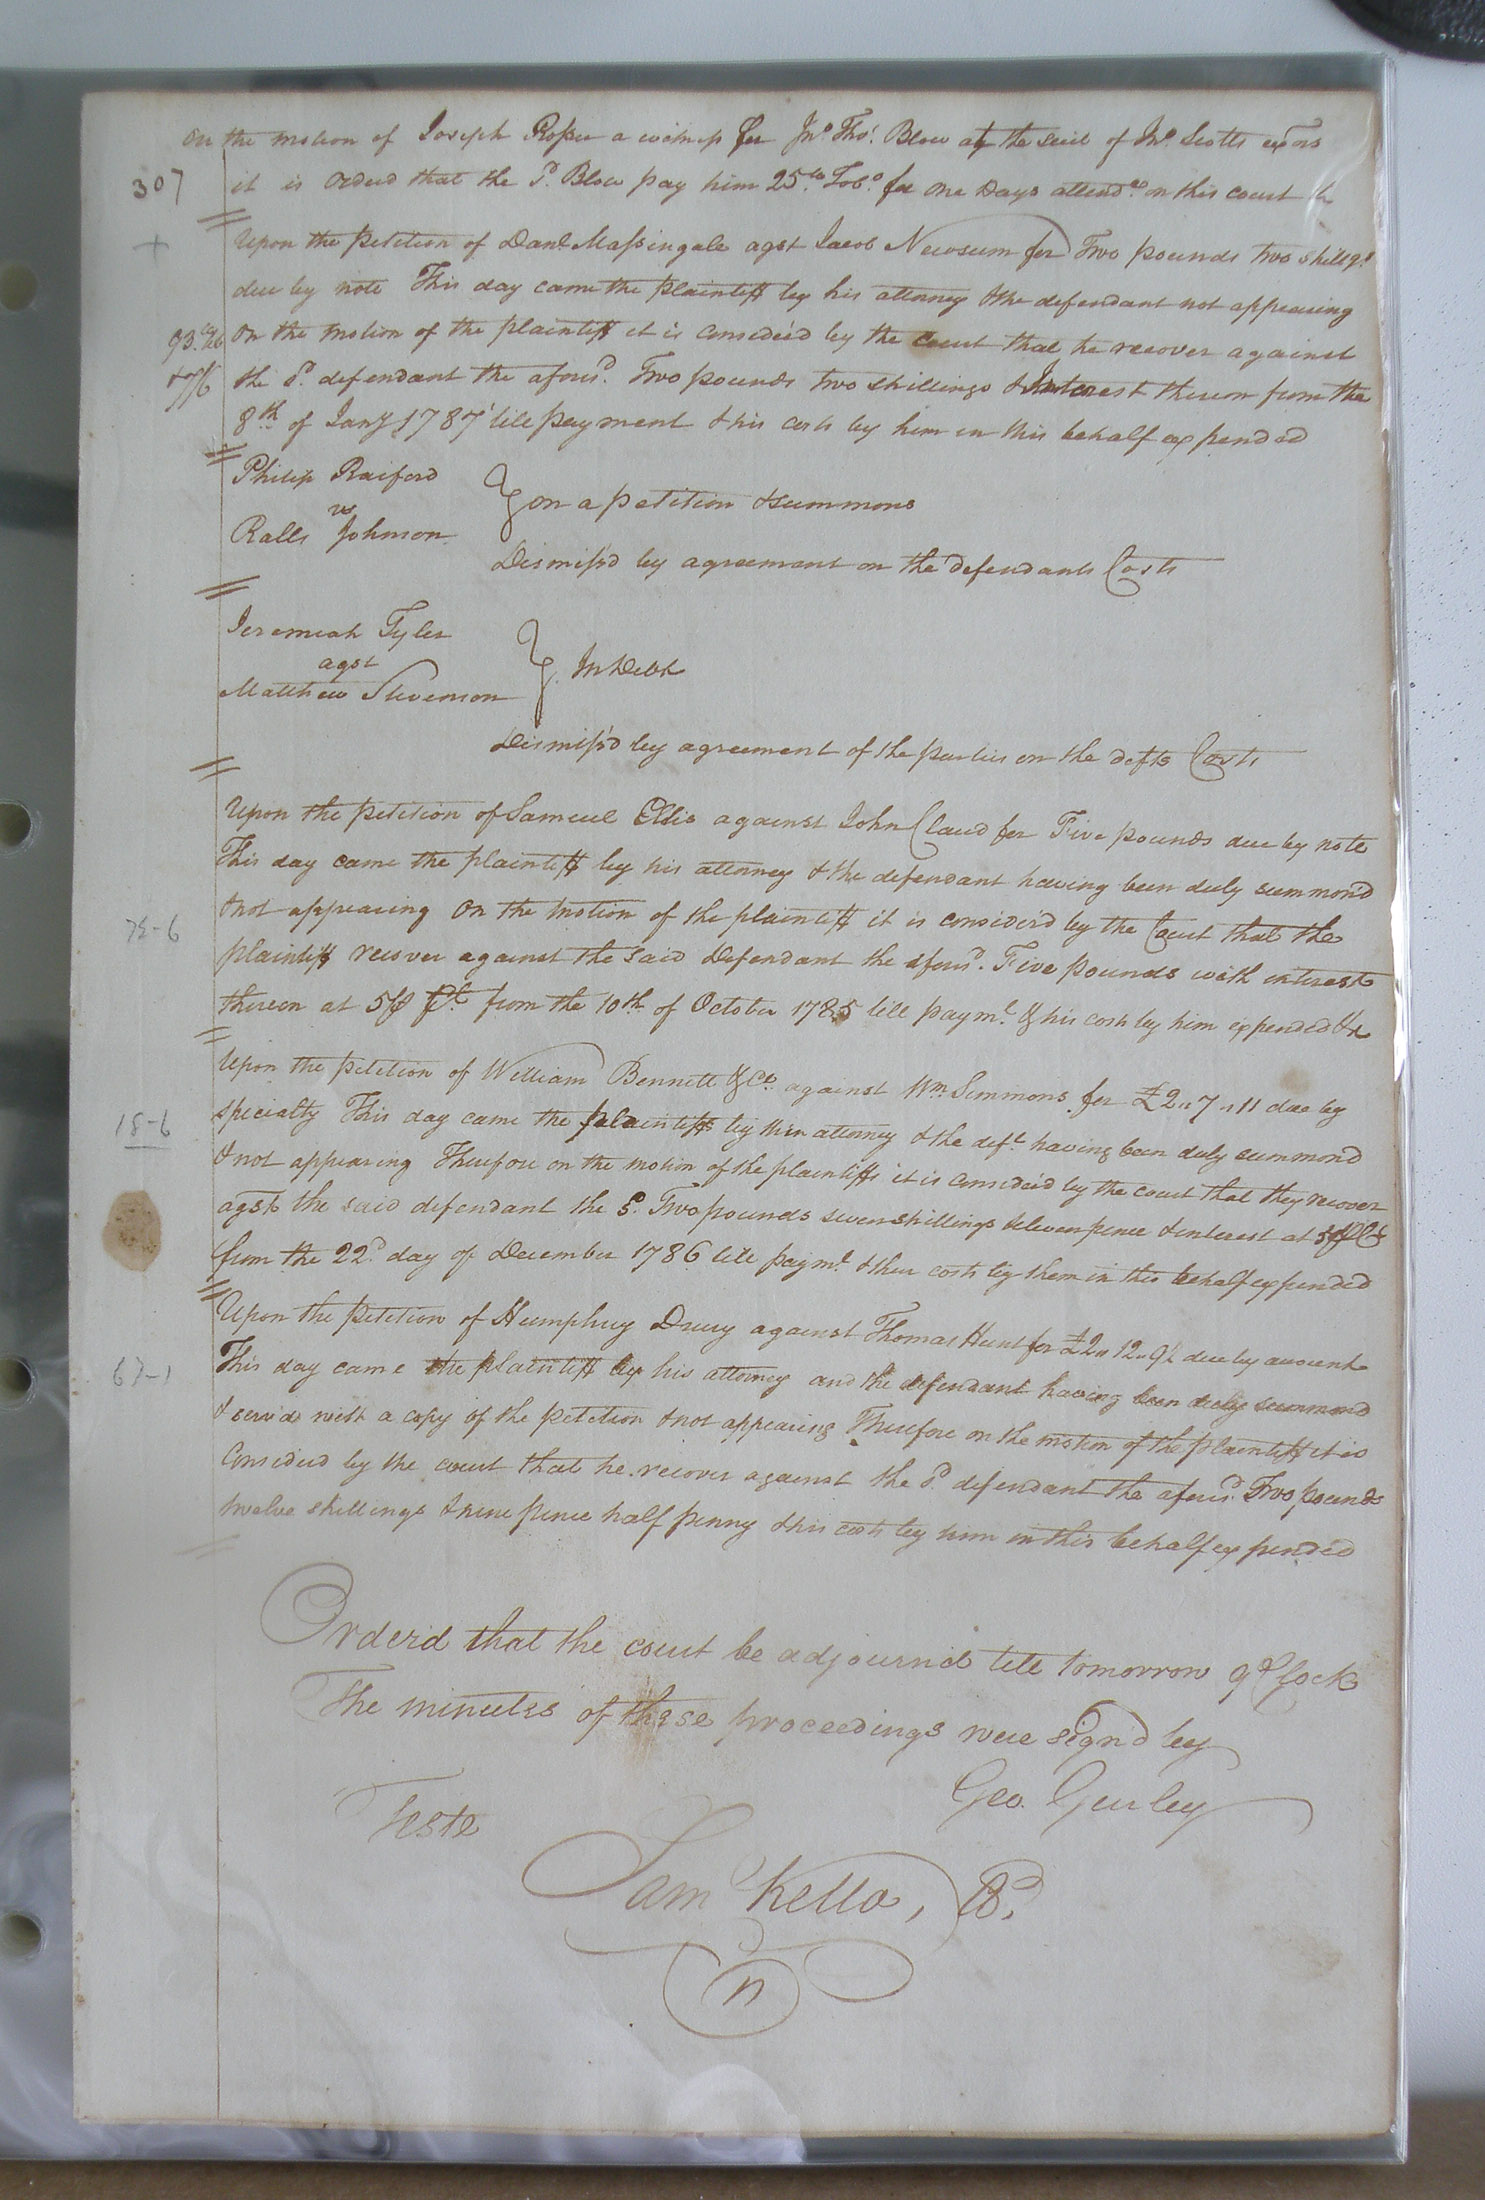 On the motion of Joseph Roper a witness for Jno Thos. Blow at the suit of Jno Scotts exors
307
it is Orderd that the sd. Blow pay him 25 lb Tobo. for one days attendce on this court &c
Upon the petition of Danl Massingale agst Jacob Newsum for Two pounds two shillgs.
due by note This day came the plaintiff by his attorney & the defendant not appearing
On the motion of the plaintiff it is considerd by the court that he recover against
the sd. defendant the aforesd. Two pounds two shillings & Interest thereon from the
8th of Jany 1787 till payment & his costs by him in this behalf expended
Philip Raiford
vs
Ralls Johnson
} on a petition & summons
Dismiss'd by agreement on the defendants Costs
Jeremiah Tyler
agst
Matthew Stevenson
} In Debt
Dismiss'd by agreement of the parties on the defts Costs
Upon the petition of Samuel Ellis against John Claud for Five pounds due by note
This day came the plaintiff by his attorney & the defendant having been duly summon'd
& not appearing On the motion of the plaintiff it is considerd by the Court that the
plaintiff recover against the said Defendant the aforesd. Five pounds with interest
thereon at 5 p Ct. from the 10th of October 1785 till paymt. & his costs by him expended &c
Upon the petition of William Bennett & Co. against Wm. Simmons for £2 " 7 " 11 due by
18-6
specialty This day came the plaintiffs by their attorney & the deft. having been duly summond
& not appearing Therefore on the motion of the plaintiffs it is considerd by the court that they recover
agst the said defendant the sd. Two pounds seven shillings & eleven pence & interest at 5 p Ct
from the 22d. day of December 1786 till paymt. & their costs by them in this behalf expended
Upon the petition of Humphry Drury against Thomas Hunt for £2 " 12 " 9½ due by account
This day came the plaintiff by his attorney and the defendant having been duly summond
& servd with a copy of the petition & not appearing Therefore on the motion of the plaintiff it is
Considerd by the court that he recover against the sd. defendant the aforesd. Two pounds
twelve shillings & nine pence half penny & his costs by him in this behalf expended
Orderd that the court be adjournd till tomorrow 9 oClock
The minutes of these proceedings were signd by
Geo. Gurley
Teste
Sam Kello,